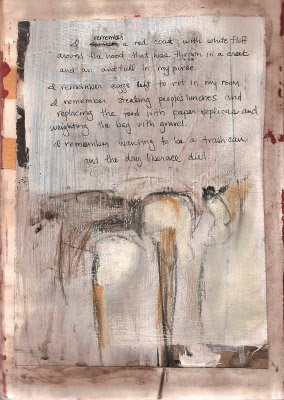 remember
I a red coat with white fluff
around the hood that was thrown in a creek
and an anthill in my purse.
I remember eggs left to rot in my room,
I remember stealing people's lunches and
replacing the food with paper replicas and
weighting the bag with gravel.
I remember wanting to be a trash can
and the day liberace died.